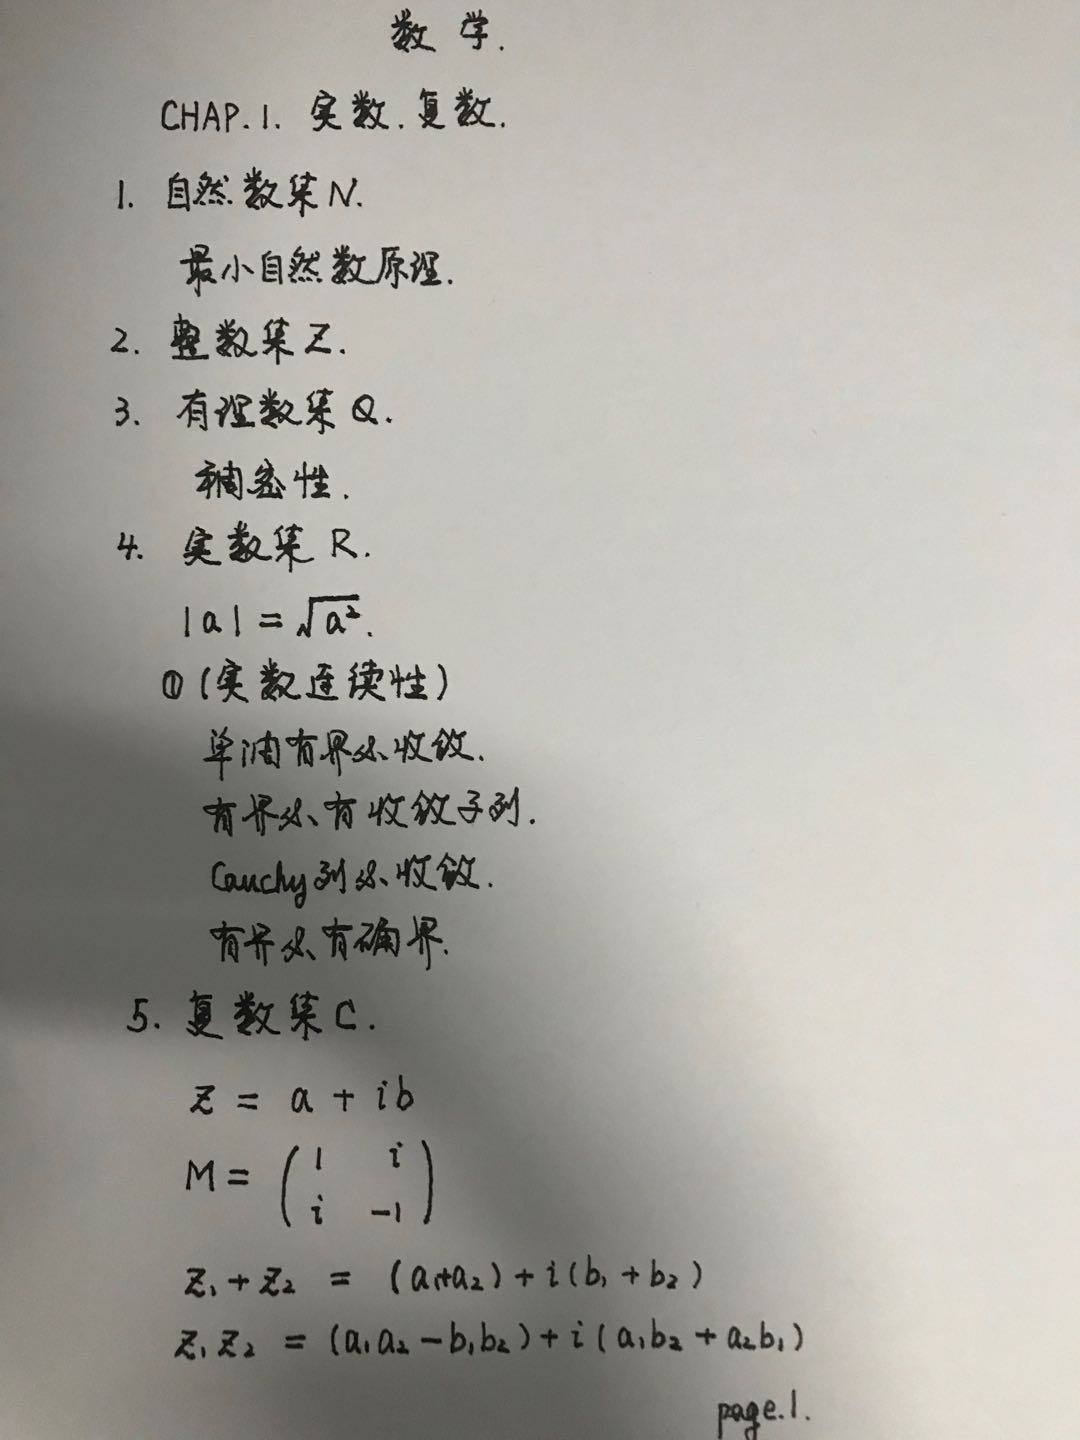 数学.
CHAP.1. 实数.复数.
1. 自然数集N.
最小自然数原理.
2. 整数集Z.
3. 有理数集Q.
稠密性.
4. 实数集R.
|a| = √a².
① (实数连续性)
单调有界必收敛.
有界必有收敛子列.
Cauchy列必收敛.
有界必有确界.
5. 复数集C.
z = a + ib
M = ( 1 i
i -1 )
z₁ + z₂ = (a₁+a₂) + i(b₁ + b₂)
z₁z₂ = (a₁a₂ - b₁b₂) + i(a₁b₂ + a₂b₁)
page.1.